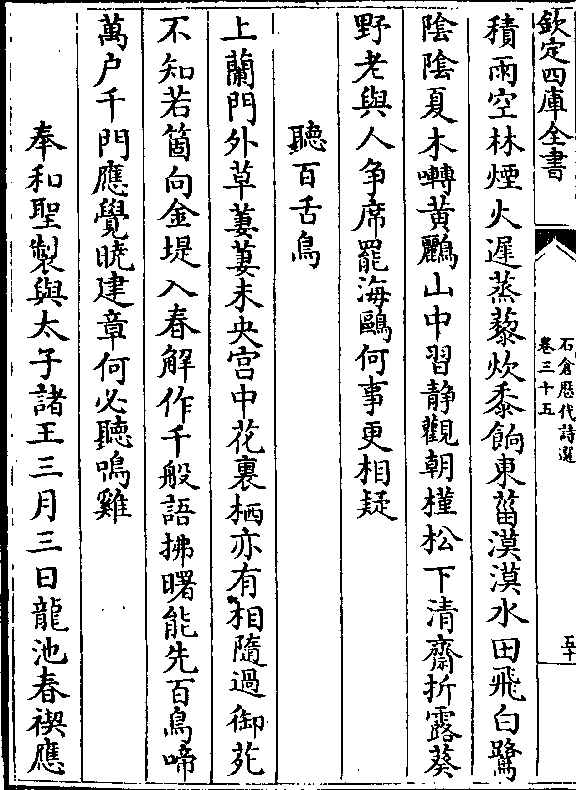 欽定四庫全書
石倉歴代詩選
卷三十五
五十
積雨空林煙火遲蒸藜炊黍餉東菑漠漠水田飛白鷺
陰陰夏木囀黄鸝山中習静觀朝槿松下清齋折露葵
野老與人争席罷海鷗何事更相疑
聽百舌鳥
上蘭門外草萋萋未央宫中花裏栖亦有相隨過御苑
不知若箇向金堤入春解作千般語拂曙能先百鳥啼
萬户千門應覺曉建章何必聽鳴雞
奉和聖製與太子諸王三月三日龍池春禊應